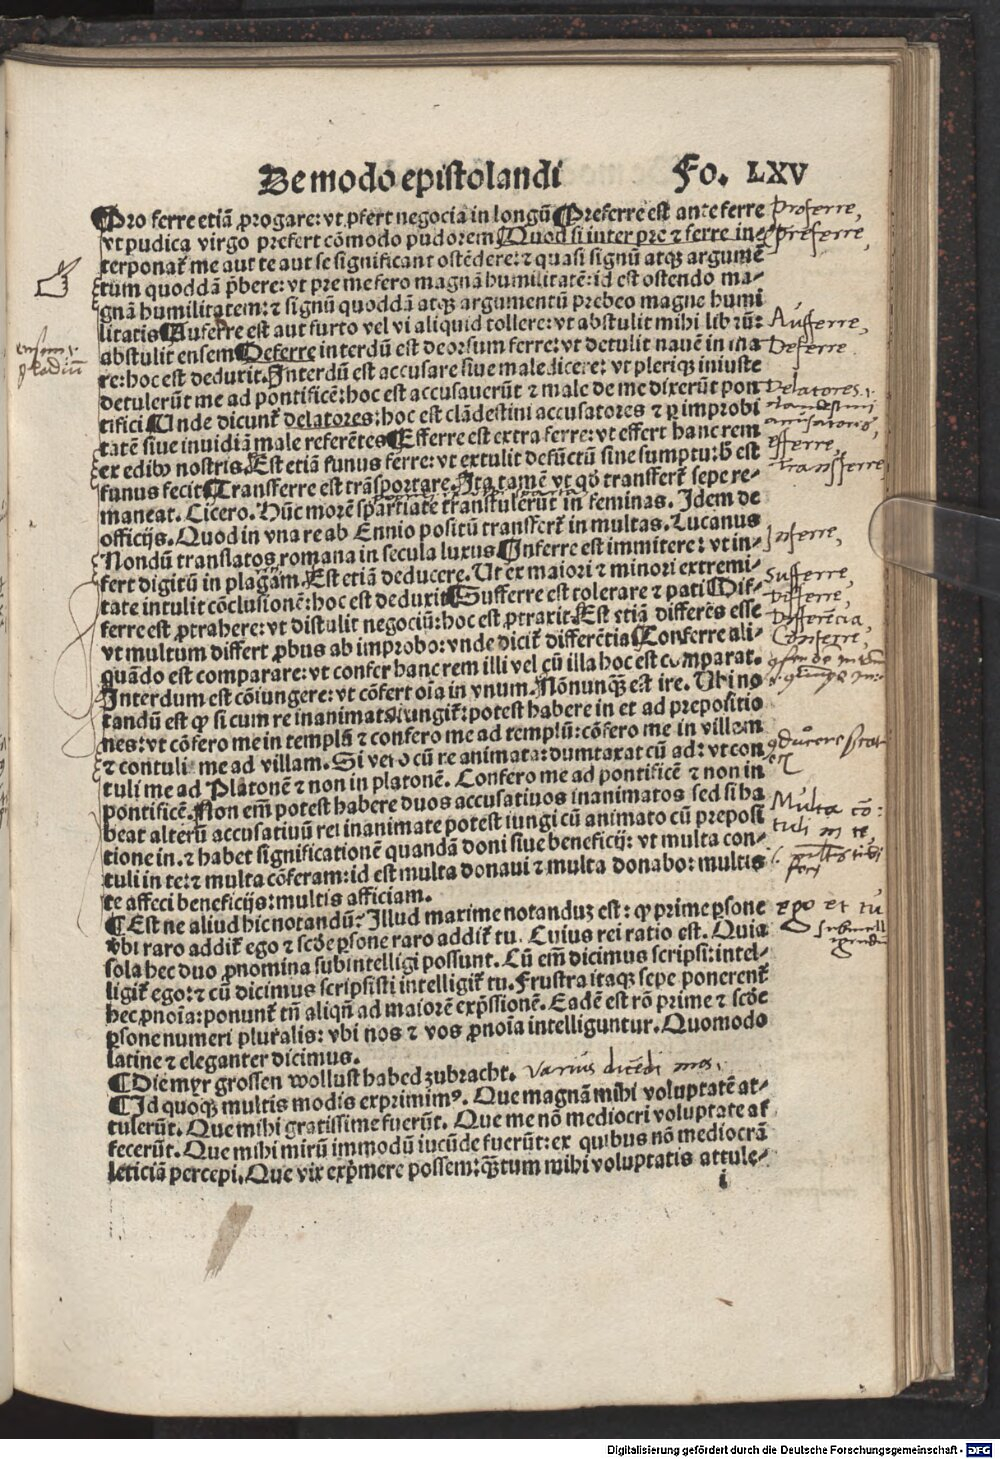 De modo epistolandi Fo. LXV
¶Pro ferre etiā ꝓrogare: vt ꝓfert negocia in longū ¶Preferre est ante ferre
vt pudica virgo prefert cōmodo pudorem ¶Quod si inter pre ⁊ ferre in⸗
terponat᷑ me aut te aut se significant ostēdere: ⁊ quasi signū atqꝫ argumē
tum quoddā p̄bere: vt pre me fero magnā humilitatē: id est ostendo ma⸗
gnā humilitatem: ⁊ signū quoddā atqꝫ argumentū prebeo magne humi
litatis ¶Auferre est aut furto vel vi aliquid tollere: vt abstulit mihi librū:
abstulit ensem ¶Deferre interdū est deorsum ferre: vt detulit nauē in ma
re: hoc est deduxit. Interdū est accusare siue maledicere: vt pleriqꝫ iniuste
detulerūt me ad pontificē: hoc est accusauerūt ⁊ male de me dixerūt pon
tifici ¶Unde dicunt᷑ delatores: hoc est clādestini accusatores ⁊ ꝑ improbi
tatē siue inuidiā male referētes ¶Efferre est extra ferre: vt effert hanc rem
ex edibꝰ nostris. Est etiā funus ferre: vt extulit defūctū sine sumptu: h̄ est
funus fecit ¶Transferre est trāsportare. Ita tamē vt qd̄ transfert᷑ sepe re⸗
maneat. Cicero. Hūc morē spartiate trānstulerūt in feminas. Idem de
officijs. Quod in vna re ab Ennio positū transfert᷑ in multas. Lucanus
Nondū translatos romana in secula luxus ¶Inferre est immitere: vt in⸗
fert digitū in plagam. Est etiā deducere. Ut ex maiori ⁊ minori extremi⸗
tate intulit cōclusionē: hoc est deduxit ¶Sufferre est tolerare ⁊ pati ¶Dif⸗
ferre est ꝓtrahere: vt distulit negociū: hoc est ꝓtraxit. Est etiā differēs esse
vt multum differt ꝓbus ab improbo: vnde dicit᷑ differētia ¶Conferre ali⸗
quādo est comparare: vt confer hanc rem illi vel cū illa hoc est comparat.
Interdum est cōiungere: vt cōfert oīa in vnum. Nōnunqꝫ est ire. Ubi no
tandū est ꝙ si cum re inanimata iungit᷑: potest habere in et ad prepositio
nes: vt cōfero me in templū ⁊ confero me ad templū: cōfero me in villam
⁊ contuli me ad villam. Si vero cū re animata: dumtaxat cū ad: vt con
tuli me ad Platonē ⁊ non in platonē. Confero me ad pontificē ⁊ non in
pontificē. Non em̄ potest habere duos accusatiuos inanimatos sed si ha
beat alterū accusatiuū rei inanimate potest iungi cū animato cū preposi
tione in. ⁊ habet significationē quandā doni siue beneficij: vt multa con⸗
tuli in te: ⁊ multa cōferam: id est multa donaui ⁊ multa donabo: multis
te affeci beneficijs: multis afficiam.
¶Est ne aliud hic notandū? Illud maxime notanduꝫ est: ꝙ prime ꝑsone
vbi raro addit᷑ ego ⁊ scd̄e ꝑsone raro addit᷑ tu. Cuius rei ratio est. Quia
sola hec duo ꝓnomina subintelligi possunt. Cū em̄ dicimus scripsi: intel⸗
ligit᷑ ego: ⁊ cū dicimus scripsisti intelligit᷑ tu. Frustra itaqꝫ sepe ponerent᷑
hec ꝓnoīa: ponunt᷑ tn̄ aliqn̄ ad maiorē exp̄ssionē. Eadē est rō prime ⁊ scd̄e
ꝑsone numeri pluralis: vbi nos ⁊ vos ꝓnoīa intelliguntur. Quomodo
latine ⁊ eleganter dicimus.
¶Die myr grossen wollust habed zubracht. Varius dicēdi mos.
¶Id quoqꝫ multis modis exprimimꝰ. Que magnā mihi voluptatē at⸗
tulerūt. Que mihi gratissime fuerūt. Que me nō mediocri voluptate af
fecerūt. Que mihi mirū immodū iucūde fuerūt: ex quibus nō mediocrā
leticiā percepi. Que vix exp̄mere possem: qꝫtum mihi voluptatis attule⸗
i
Proferre,
Preferre,
Aufferre,
Defferre
Delatores
efferre,
Transferre
Inferre,
Sufferre,
Differre,
Differēcia,
Conferre,
Multa cō⸗
tuli in te,
ego et tu
Digitalisierung gefördert durch die Deutsche Forschungsgemeinschaft - DFG